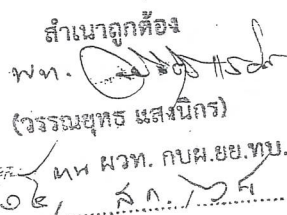 สำเนาถูกต้อง
พ.ท.
(วรรณยุทธ แสงนิกร)
หน ผวท. กบผ.ยย.ทบ.
๑๔ / ส.ค. /